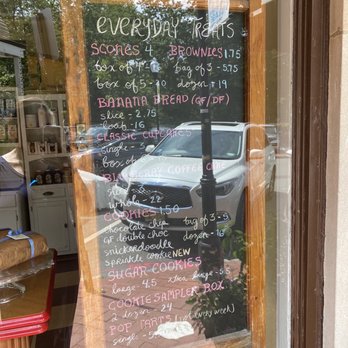 EVERYDAY TREATS
SCONES 4 BROWNIES 1.75
box of 4 - 15 bag of 3 - 5.75
box of 5 - 20 dozen - 19
BANANA BREAD (GF/DF)
slice - 2.75
loaf - 16
CLASSIC CUPCAKES
single -
box of
BLUEBERRY COFFEE CAKE
whole - 22
COOKIES 1.50
chocolate chip bag of 3 - 5
GF double choc dozen - 16
snickerdoodle
sprinkle cookie NEW
SUGAR COOKIES
large - 4.5 xtra large - 5.5
COOKIE SAMPLER BOX
2 dozen - 24
POP TARTS (not every week)
single - 5